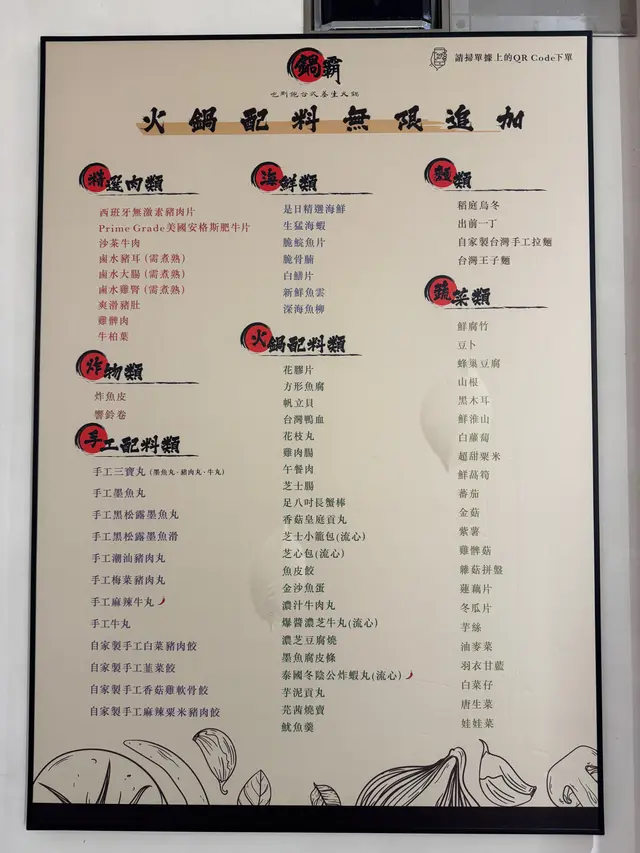 請掃單據上的QR Code下單
鍋霸
火鍋配料無限追加
精選肉類
西班牙無激素豬肉片
Prime Grade美國安格斯肥牛片
沙茶牛肉
鹵水豬耳 (需煮熟)
鹵水大腸 (需煮熟)
鹵水雞腎 (需煮熟)
爽滑豬肚
雞髀肉
牛柏葉
炸物類
炸魚皮
響鈴卷
手工配料類
手工三寶丸 (墨魚丸、豬肉丸、牛丸)
手工墨魚丸
手工黑松露墨魚丸
手工黑松露墨魚滑
手工潮汕豬肉丸
手工梅菜豬肉丸
手工麻辣牛丸
手工牛丸
自家製手工白菜豬肉餃
自家製手工韮菜餃
自家製手工香菇雞軟骨餃
自家製手工麻辣粟米豬肉餃
海鮮類
是日精選海鮮
生猛海蝦
脆鯇魚片
脆骨腩
白鱔片
新鮮魚雲
深海魚柳
火鍋配料類
花膠片
方形魚腐
帆立貝
台灣鴨血
花枝丸
雞肉腸
午餐肉
芝士腸
足八吋長蟹棒
香菇皇庭貢丸
芝士小籠包(流心)
芝心包(流心)
魚皮餃
金沙魚蛋
濃汁牛肉丸
爆醬濃芝牛丸(流心)
濃芝豆腐燒
墨魚腐皮條
泰國冬陰公炸蝦丸(流心)
芋泥貢丸
芫茜燒賣
魷魚羹
麵類
稻庭烏冬
出前一丁
自家製台灣手工拉麵
台灣王子麵
蔬菜類
鮮腐竹
豆卜
蜂巢豆腐
山根
黑木耳
鮮淮山
白蘿蔔
超甜粟米
鮮萵筍
蕃茄
金菇
紫薯
雞髀菇
雜菇拼盤
蓮藕片
冬瓜片
芋絲
油麥菜
羽衣甘藍
白菜仔
唐生菜
娃娃菜